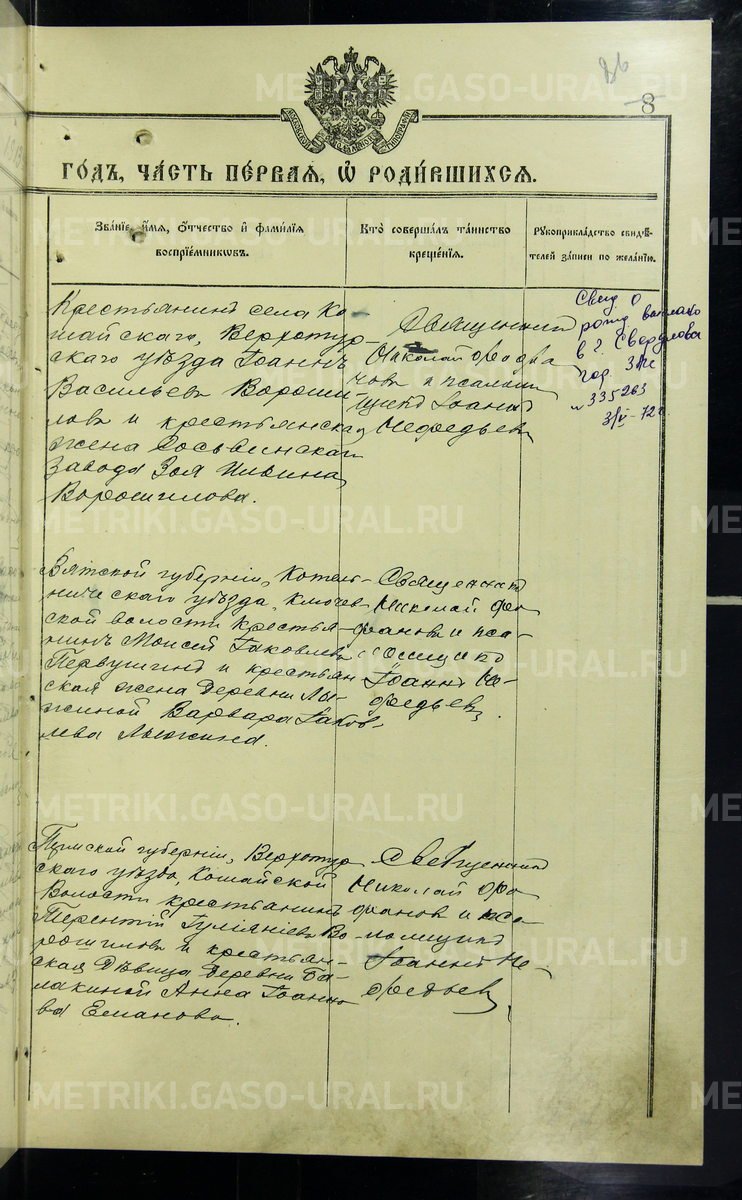 8
ГОДЪ, ЧАСТЬ ПЕРВАЯ, Ѡ РОДИВШИХСЯ.
Званіе, имя, отчество и фамилія
воспріемниковъ.
Кто совершалъ таинство
крещенія.
Рукоприкладство свидѣ-
телей записи по желанію.
Крестьянинъ села Ко
шайскаго, Верхотур-
скаго уѣзда Іоаннъ
Васильевъ Вороши-
ловъ и крестьянская
жена Сосьвинскаго
Завода Зоя
Ворошилова.
Священникъ
Николай
и псалом
щикъ Іоаннъ
Мефедьевъ
Свид о
рожд
в г. Свердловск
гор. ЗАГС
№ 335263
3/V-72г
Вятской губерніи, Котель-
ническаго уѣзда, Ключев
ской волости Крестья-
нинъ Моисей Іаковлевъ
Первушинъ и крестьян
ская жена деревни Лы-
жиной Варвара Іаков-
лева Лыжина.
Священникъ
Николай Фо
фановъ и пса-
ломщикъ
Іоаннъ Ме-
федьевъ.
Пермской губерніи, Верхотур
скаго уѣзда, Кошайской
Волости крестьянинъ
Терентій Іуліаніевъ Во-
рошиловъ и крестьян-
ская Дѣвица деревни Ба-
лакиной Анна Іоанно
ва Еманова.
Священникъ
Николай Фо
фановъ и пса-
ломщикъ
Іоаннъ Ме-
федьевъ
METRIKI.GASO-URAL.RU